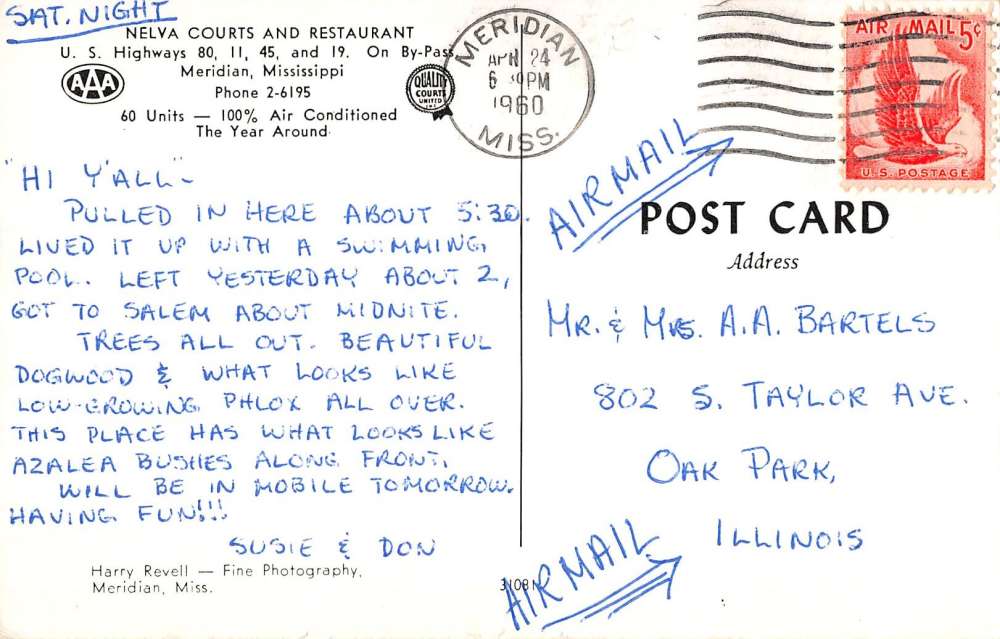 SAT. NIGHT
NELVA COURTS AND RESTAURANT
U. S. Highways 80, 11, 45, and 19. On By-Pass
Meridian, Mississippi
Phone 2-6195
60 Units — 100% Air Conditioned
The Year Around
AAA
QUALITY
COURTS
UNITED
INC.
MERIDIAN
APR 24
PM
1960
MISS.
AIR MAIL 5¢
U.S. POSTAGE
"HI Y'ALL"~
PULLED IN HERE ABOUT 5:30.
LIVED IT UP WITH A SWIMMING
POOL. LEFT YESTERDAY ABOUT 2,
GOT TO SALEM ABOUT MIDNITE.
TREES ALL OUT. BEAUTIFUL
DOGWOOD & WHAT LOOKS LIKE
LOW-GROWING PHLOX ALL OVER.
THIS PLACE HAS WHAT LOOKS LIKE
AZALEA BUSHES ALONG FRONT.
WILL BE IN MOBILE TOMORROW.
HAVING FUN!!!
SUSIE & DON
Harry Revell — Fine Photography,
Meridian, Miss.
31081
AIRMAIL
POST CARD
Address
MR. & MRS. A.A. BARTELS
802 S. TAYLOR AVE.
OAK PARK,
ILLINOIS
AIRMAIL